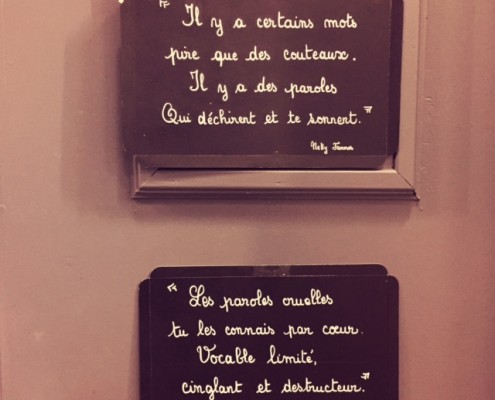 " Il y a certains mots
pire que des couteaux.
Il y a des paroles
Qui déchirent et te sonnent."
Nelly
" Les paroles cruelles
tu les connais par cœur.
Vocable limité,
cinglant et destructeur."